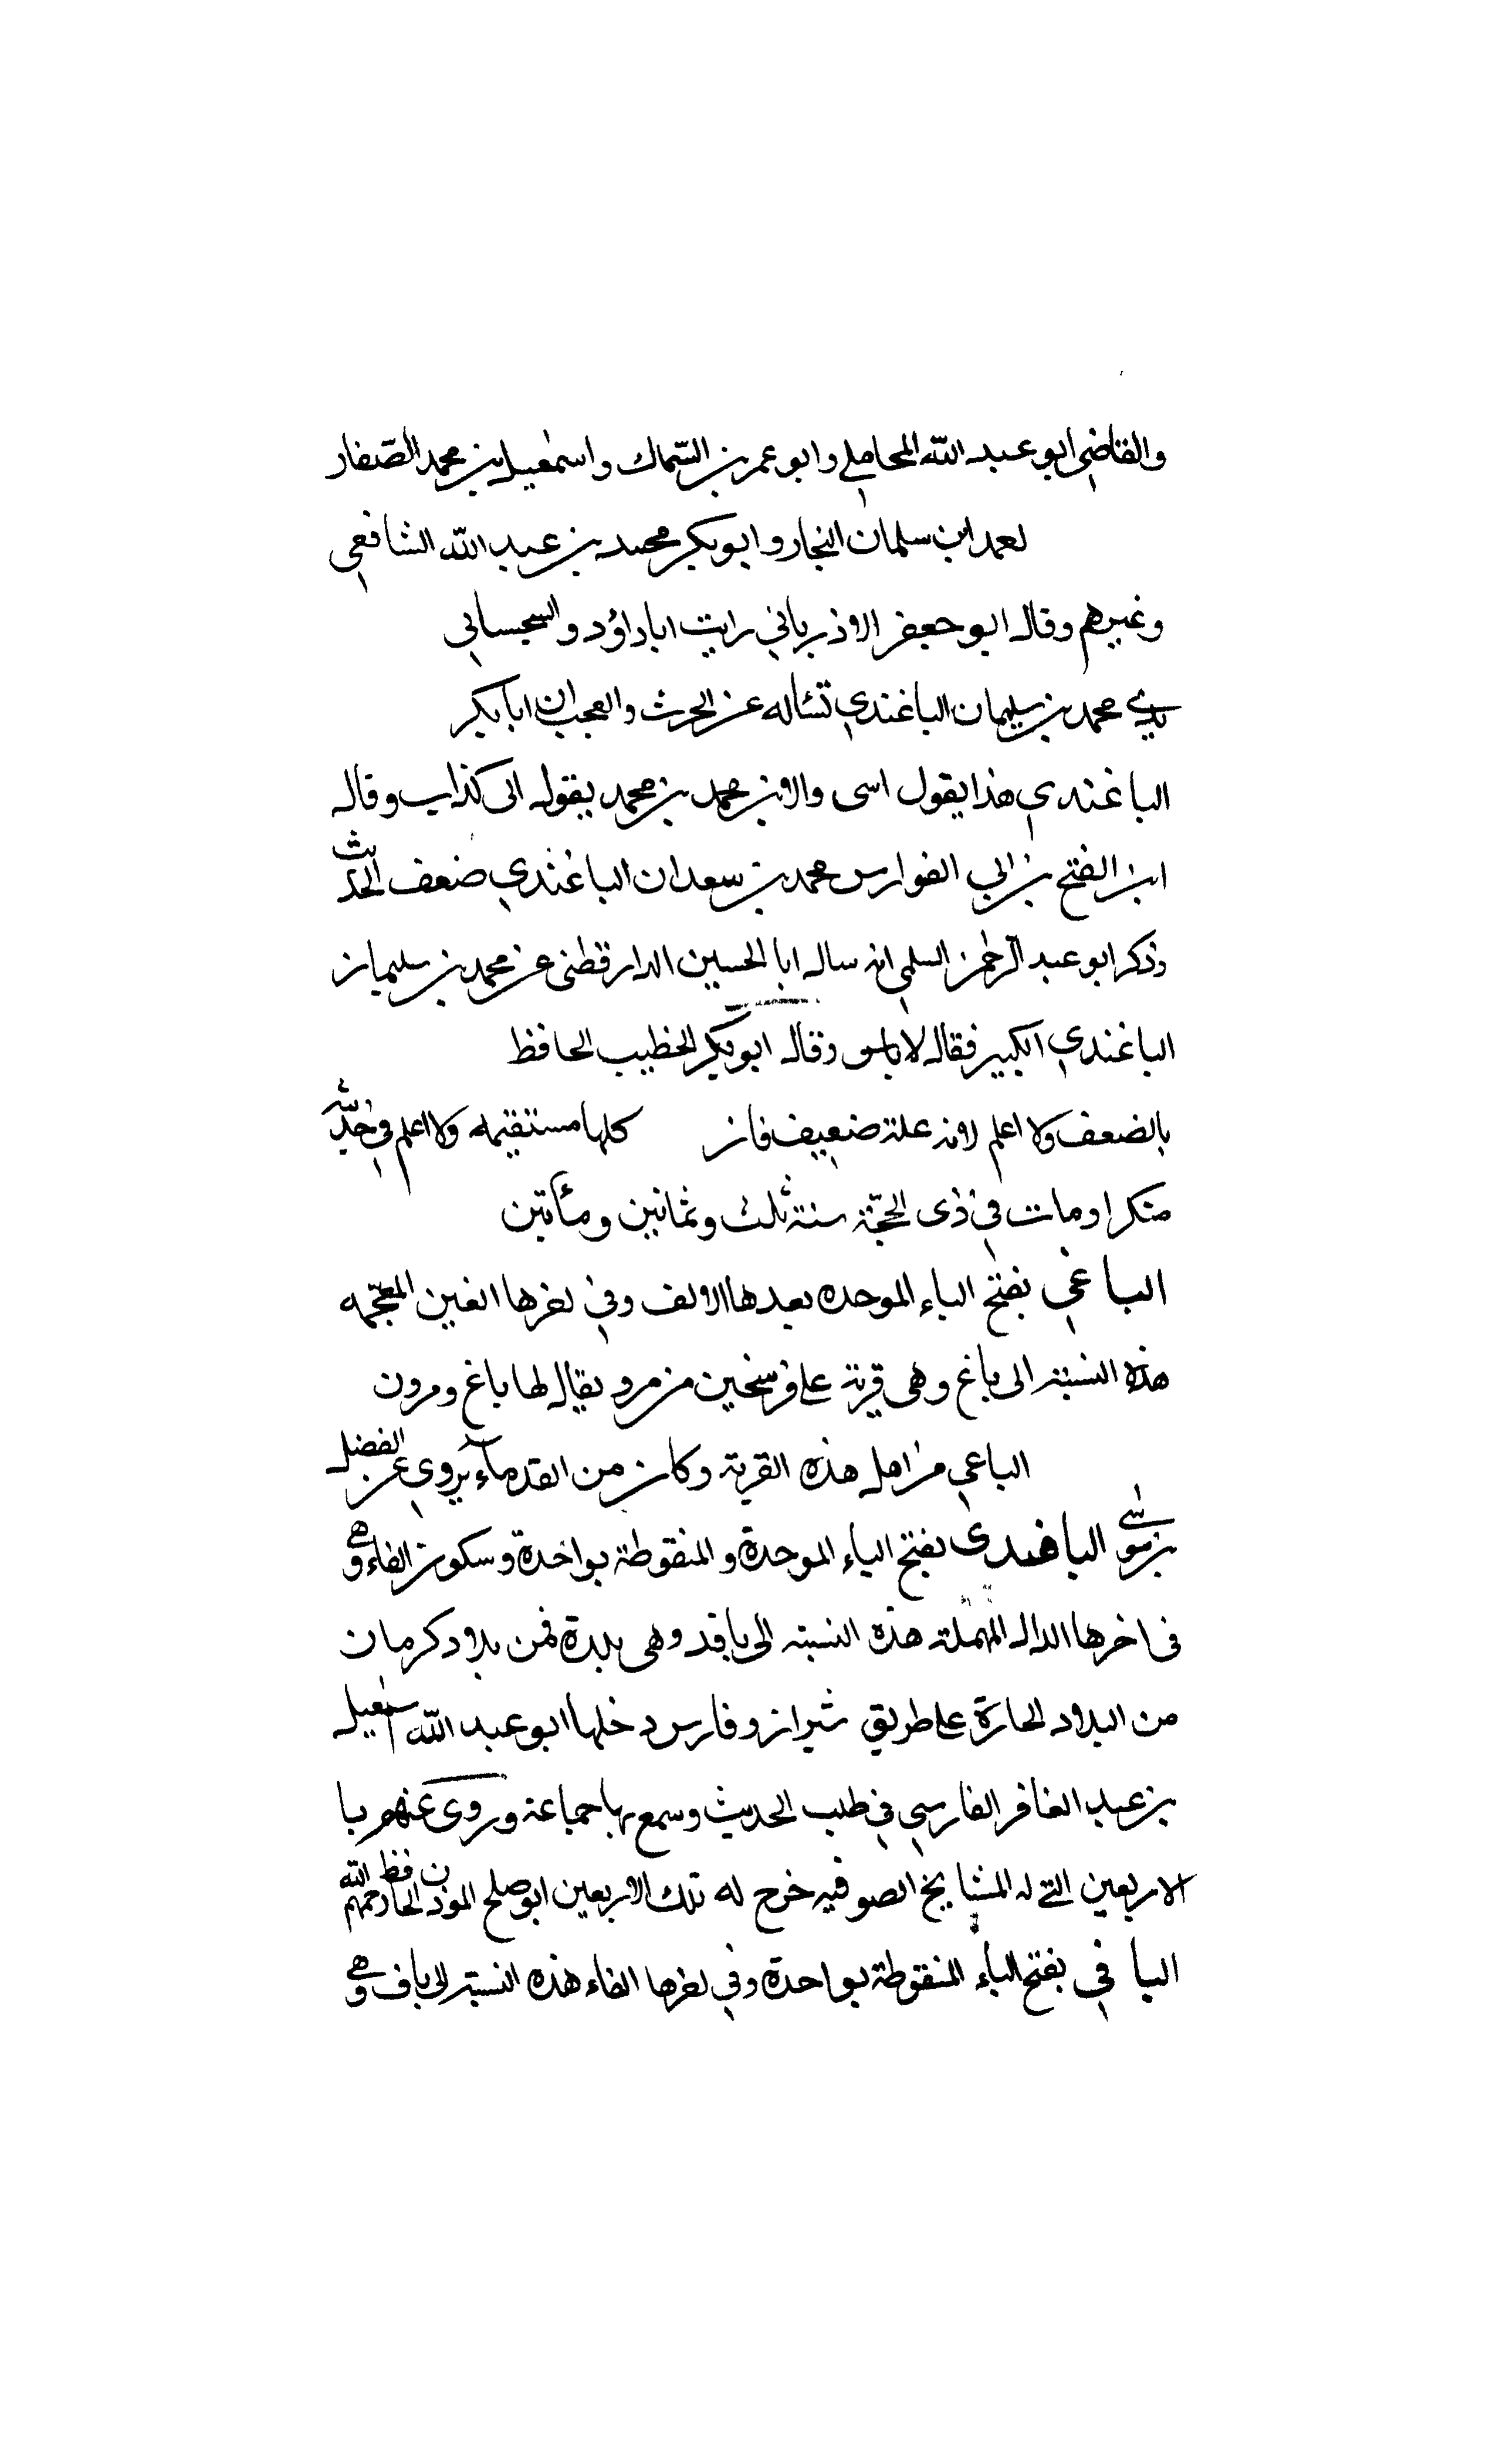 والقاضي ابو عبد الله المحاملي وابو عمر بن السّماك واسمعيل بن محمد الصّفار
ابن سلمان النجار وابو بكر محمد بن عبد الله الشافعي
وغيرهم وقال ابو جعفر الارذبرباني رايت ابا داؤد والسجسباني
يدي محمد بن سليمان الباغندي تسأله عن الحرث والعجب ان ابا بكر
الباغندي هذا يقول اسى والابن محمد بن محمد يقول الى كذاب وقال
ابن الفتح بن ابي الفوارس محمد بن سعدان الباغندي ضعف الحديث
وذكر ابو عبد الرحمن السلمي انه سال ابا الحسين الدارقطنى عن محمد بن سليمان
الباغندي الكبير فقال لا باس وقال ابو بكر الخطيب الحافظ
بالضعف ولا اعلم لانه علة ضعيف فان كلها مستقيمه ولا اعلم في حديثه
منكرا ومات في ذى الحجّة سنة ثلث وثمانين ومأتين
الباغي بفتح الباء الموحده بعدها الالف وفي اخرها الغين المعجمه
هذه النسبة الى باغ وهى قرية على فرسخين من مرو يقال لها باغ ومرون
الباغي من اهل هذه القرية وكان من القدماء يروي عن الفضل
بن موسى البافدى بفتح الباء الموحدة والمنقوطة بواحدة وسكون الفاء وهي
فى اخرها الدال المهملة هذه النسبة الى بافد وهى بلدة من بلاد كرمان
من البلاد الحارة على طريق شيراز وفارس دخلها ابو عبد الله اسمعيل
بن عبد الغافر الفارسي في طلب الحديث وسمع بها جماعة وروى عنهم با
الاربعين التي له المشايخ الصوفيه خرج له تلك الاربعين ابو صلح الموذن الحافظ رحمهم الله
البافي بفتح الباء المنقوطة بواحدة وفي اخرها الفاء هذه النسبة الى باف وهي